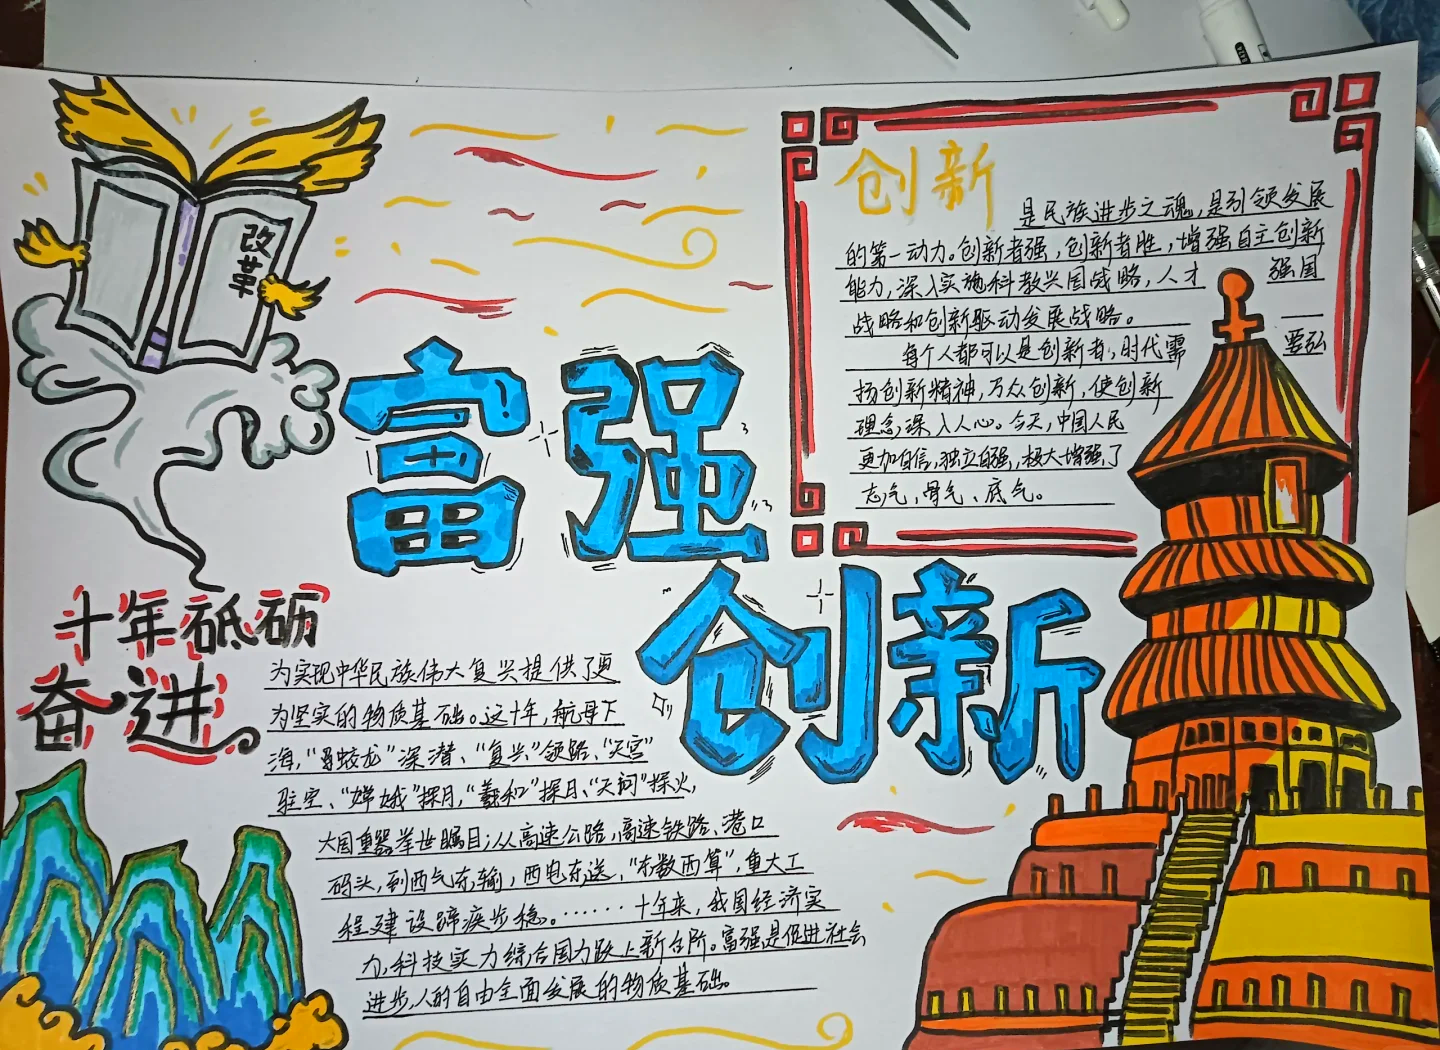 改革
富强
创新
创新
是民族进步之魂,是引领发展
的第一动力。创新者强,创新者胜,增强自主创新
能力,深入实施科教兴国战略,人才强国
战略和创新驱动发展战略。
每个人都可以是创新者,时代需要弘
扬创新精神,万众创新,使创新
理念深入人心。今天,中国人民
更加自信,独立自强,极大增强了
志气,骨气、底气。
十年砥砺
奋进
为实现中华民族伟大复兴提供了更
为坚实的物质基础。这十年,航母下
海,“蛟龙”深潜、“复兴”领跑、“天宫”
驻空、“嫦娥”探月,“羲和”探日、“天问”探火,
大国重器举世瞩目;从高速公路,高速铁路、港口
码头,到西气东输,西电东送,“东数西算”,重大工
程建设蹄疾步稳。……十年来,我国经济实
力,科技实力综合国力跃上新台阶。富强是促进社会
进步,人的自由全面发展的物质基础。